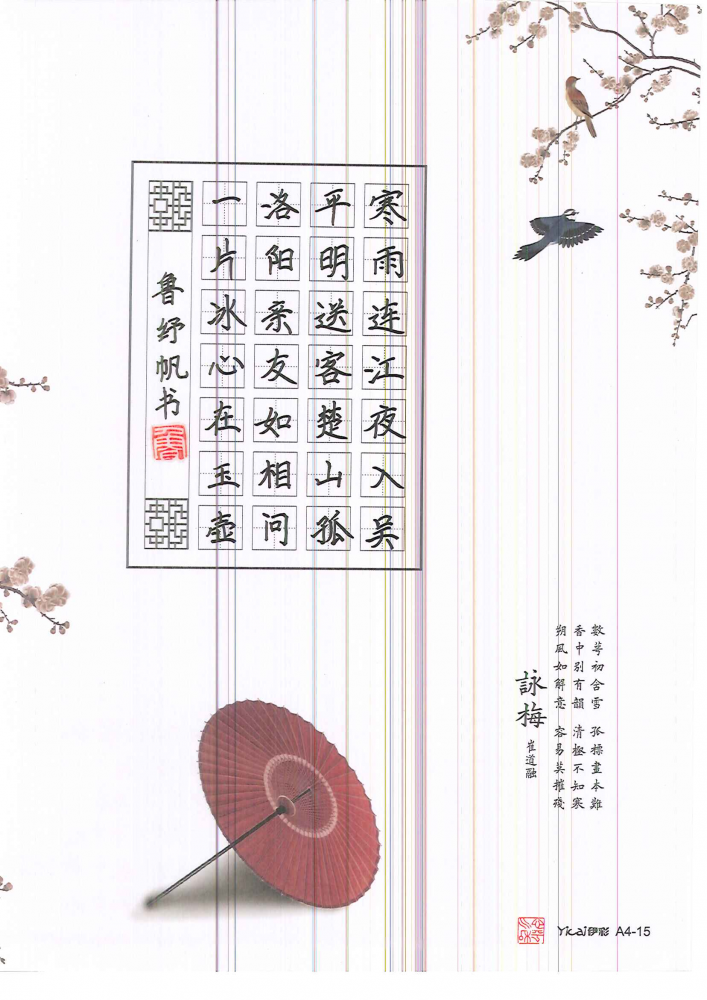 寒雨连江夜入吴
平明送客楚山孤
洛阳亲友如相问
一片冰心在玉壶
鲁纾帆书
數萼初含雪 孤標畫本難
香中別有韻 清極不知寒
朔風如解意 容易莫摧殘
詠梅
崔道融
Yicai伊彩 A4-15